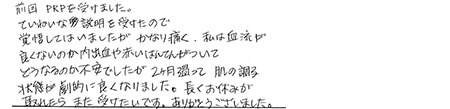 前回 PRPを受けました。
ていねいな説明を受けたので
覚悟してはいましたが かなり痛く、私は血流が
良くないのか内出血や赤いはんてんがついて
どうなるのか不安でしたが 2ヶ月過って 肌の調子
状態が劇的に良くなりました。長くお休みが
取れたら また 受けたいです。ありがとうございました。